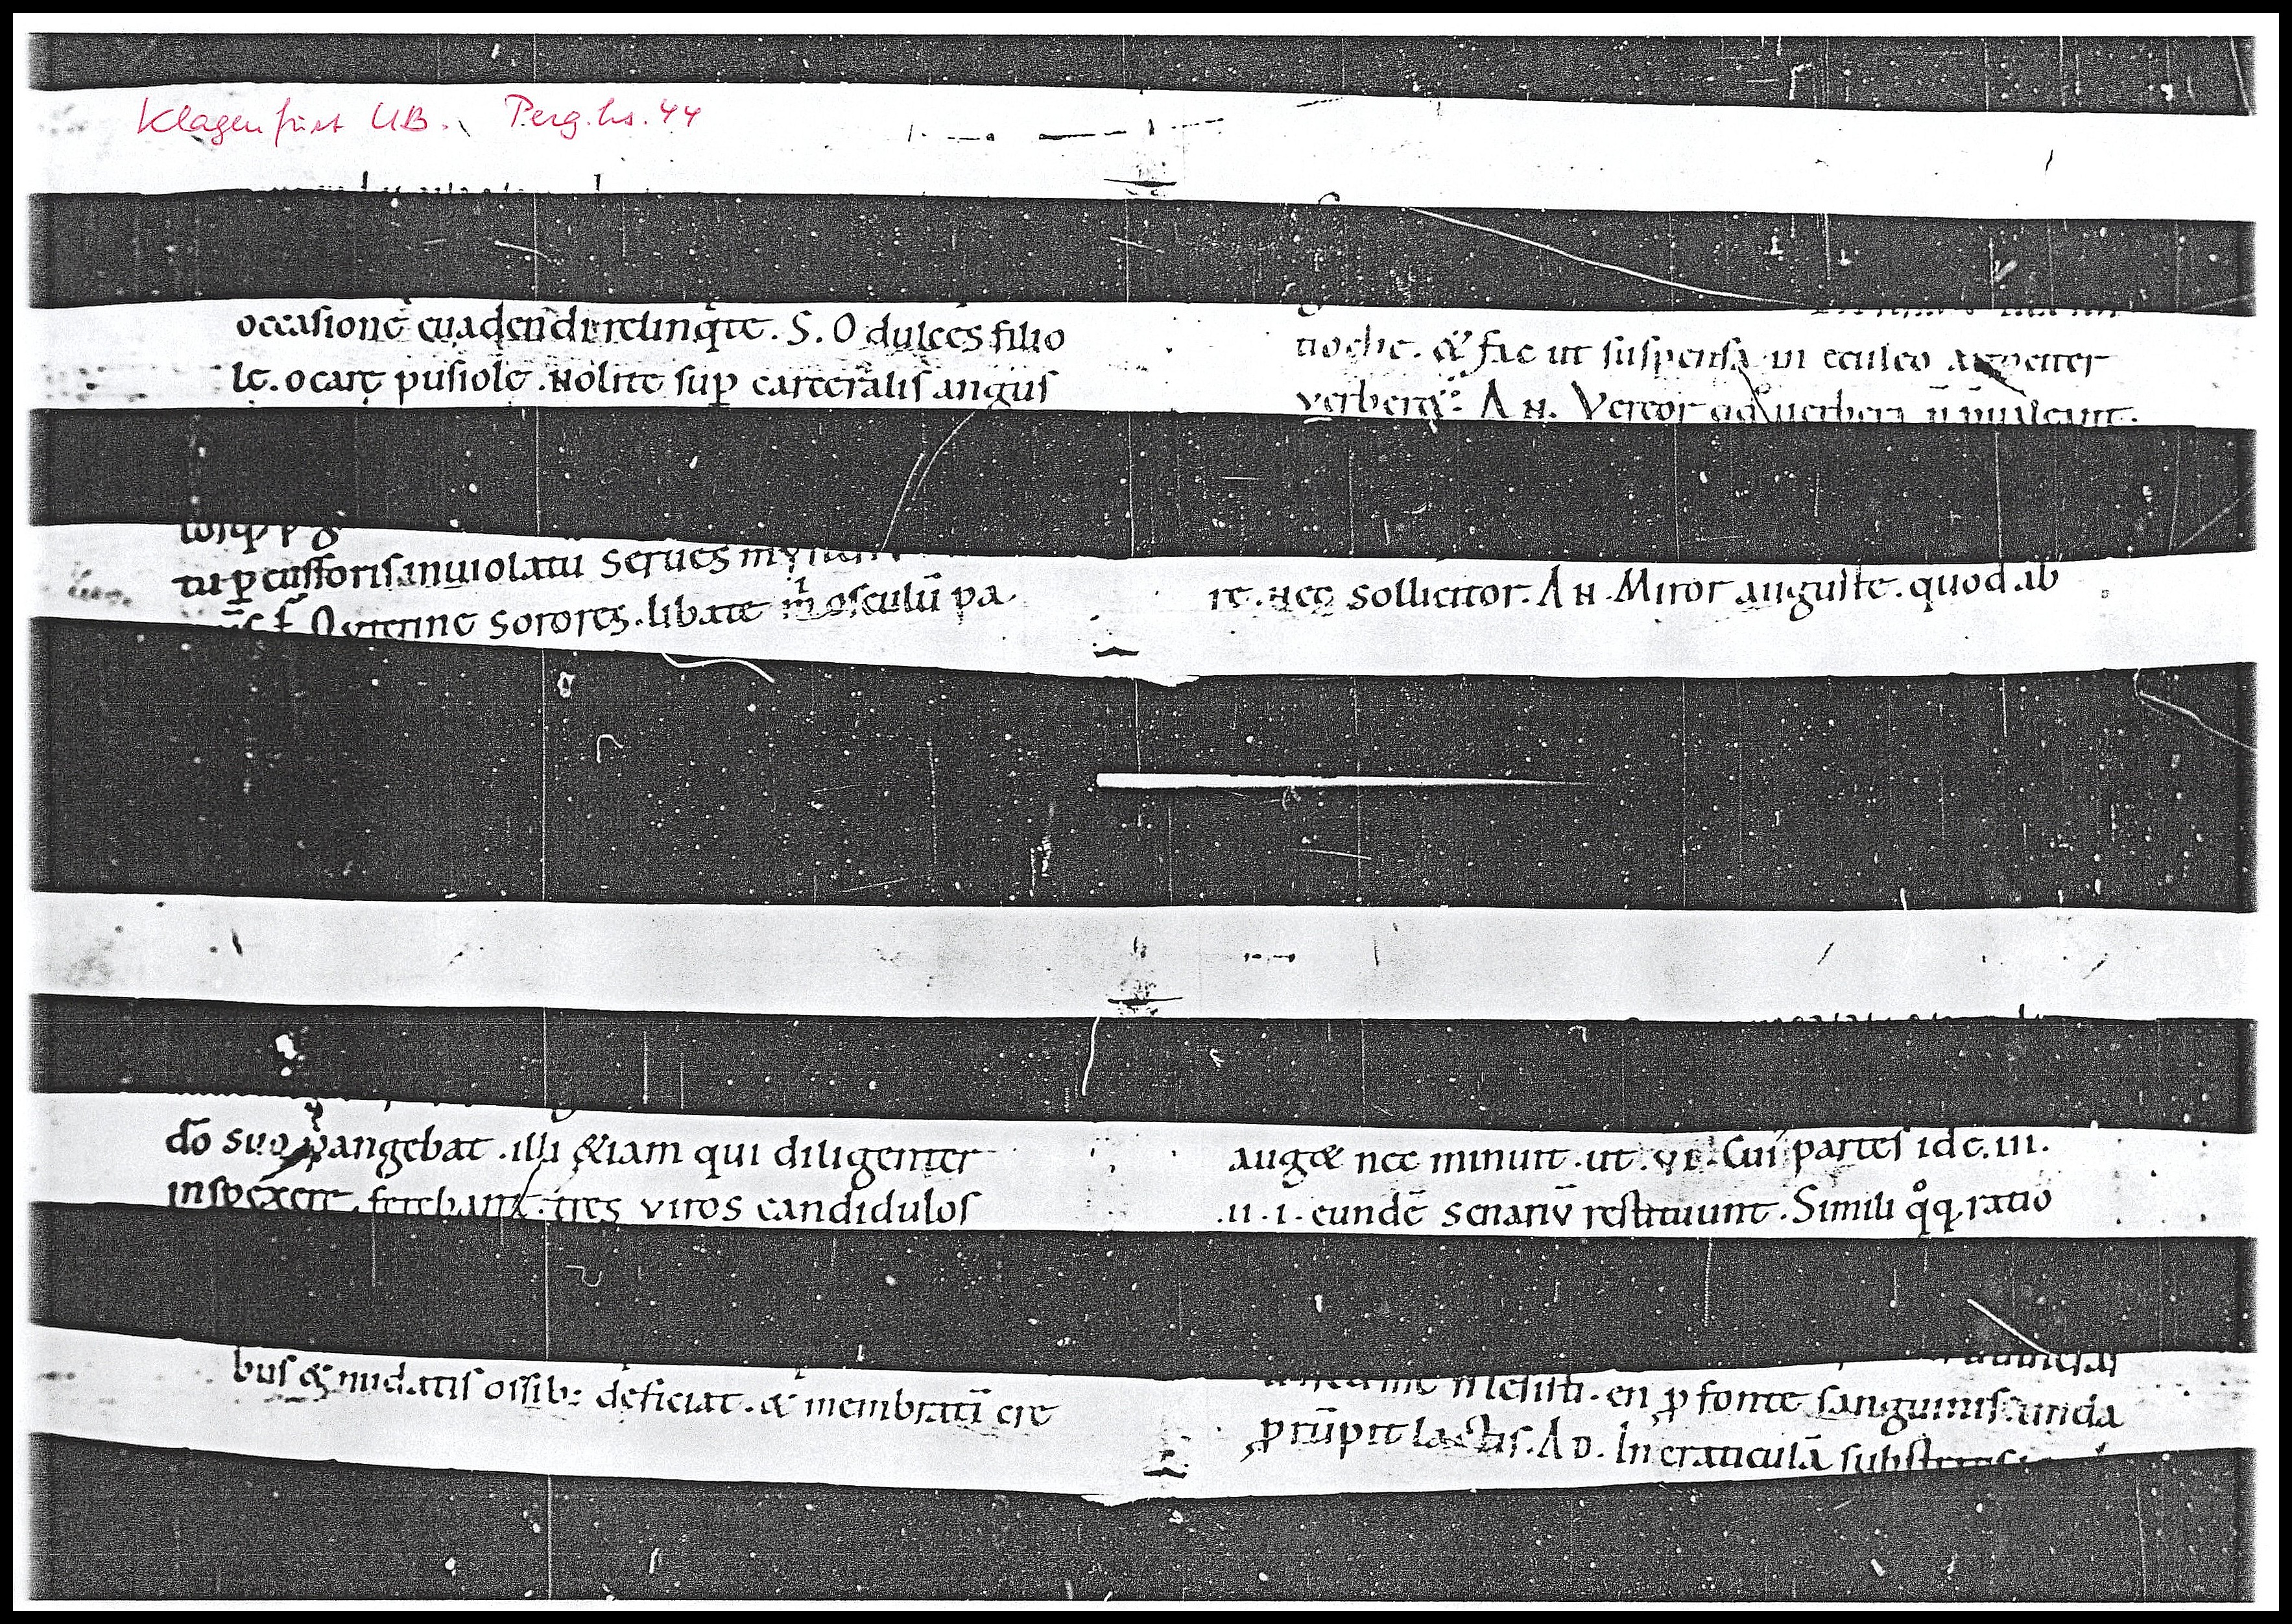 Klagenfurt UB. Perg.hs. 44
occasionē euadendi relinq̇te . S . O dulces filio
le . o care pusiole . Nolite suꝑ carceralis angus
tioche . & fac ut suspensa in eculeo
verberet᷑ : AN . Vereor qd̄ uerbera n̄
tu ꝑ cussoris inuiolatū Serues
Sorores . libate m̓ osculū pa
re . Nec sollicitor . AN . Miror auguste . quod ab
dō suo pangebat . illi &iam qui diligenter
inspexere . ferebant . tres viros candidulos
aug& nec minuit . ut . VI . Cui partes id e . III .
. II . I . eundē senariv̄ restituunt . Simili q̊q; ratio
bus & nudatis ossib; deficiat . & membratī cre
. en ꝓ fonte sanguinis . unda
ꝓrūpit lactis . AD . In craticulā